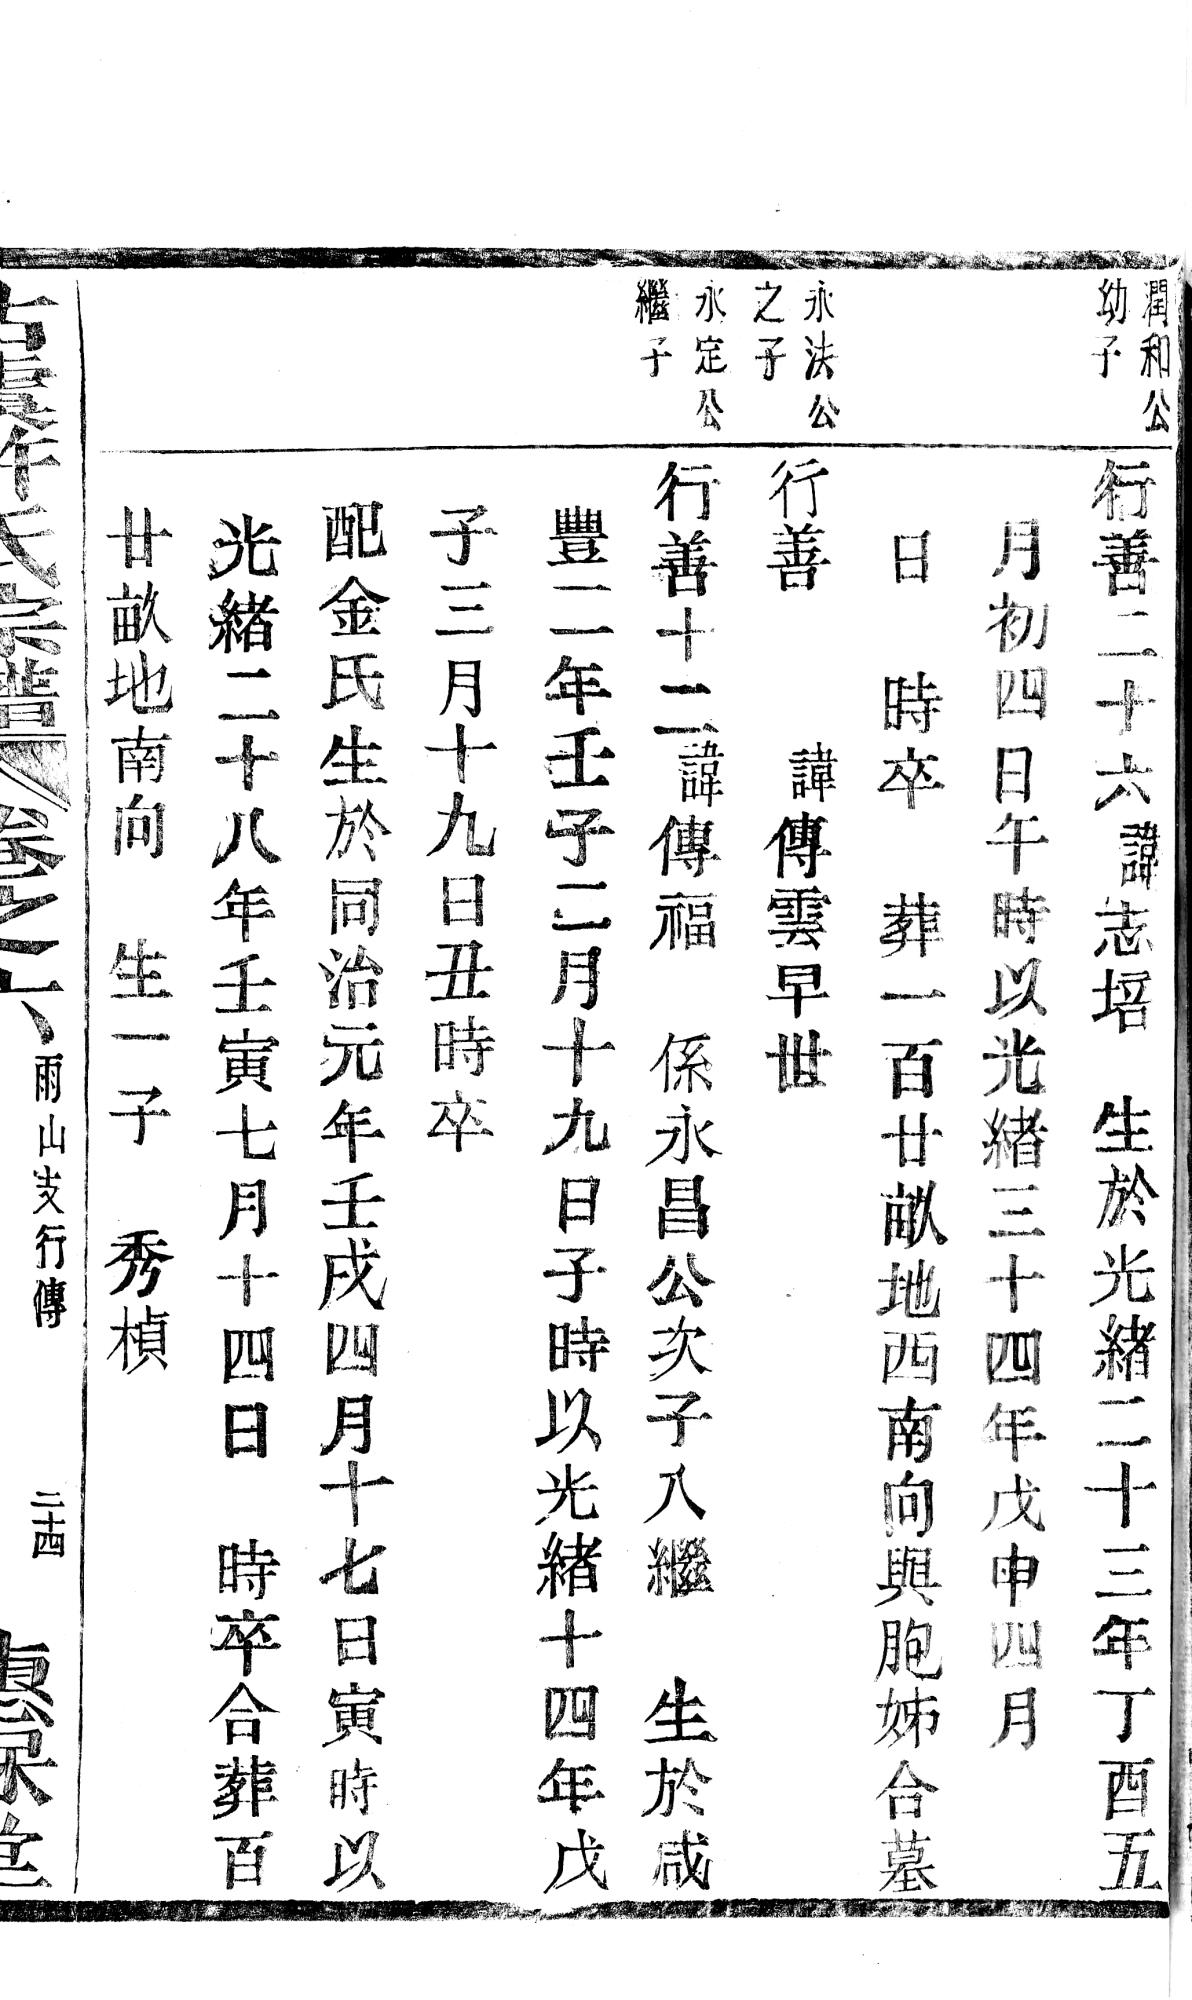 潤和公
幼子
行善二十六諱志培　生於光緒二十三年丁酉五
月初四日午時以光緒三十四年戊申四月
日　時卒　葬一百廿畝地西南向與胞姊合墓
永法公
之子
行善　　諱傳雲早世
永定公
繼子
行善十二諱傳福　係永昌公次子入繼　生於咸
豐二年壬子二月十九日子時以光緒十四年戊
子三月十九日丑時卒
配金氏生於同治元年壬戌四月十七日寅時以
光緒二十八年壬寅七月十四日　時卒合葬百
廿畝地南向　生一子　秀楨
許氏宗譜 卷之六 雨山支行傳 二十四